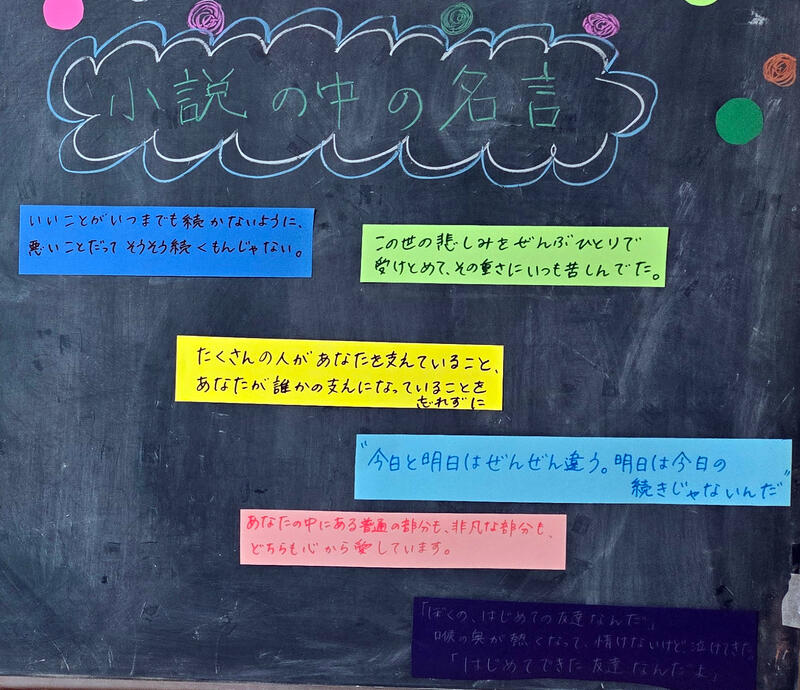 小説の中の名言
いいことがいつまでも続かないように、
悪いことだってそうそう続くもんじゃない。
この世の悲しみをぜんぶひとりで
受けとめて、その重さにいつも苦しんでた。
たくさんの人があなたを支えていること、
あなたが誰かの支えになっていることを
忘れずに
"今日と明日はぜんぜん違う。明日は今日の
続きじゃないんだ"
あなたの中にある普通の部分も、非凡な部分も、
どちらも心から愛しています。
「ぼくの、はじめての友達なんだ」
喉の奥が熱くなって、情けないけど泣けてきた。
「はじめてできた友達なんだよ」